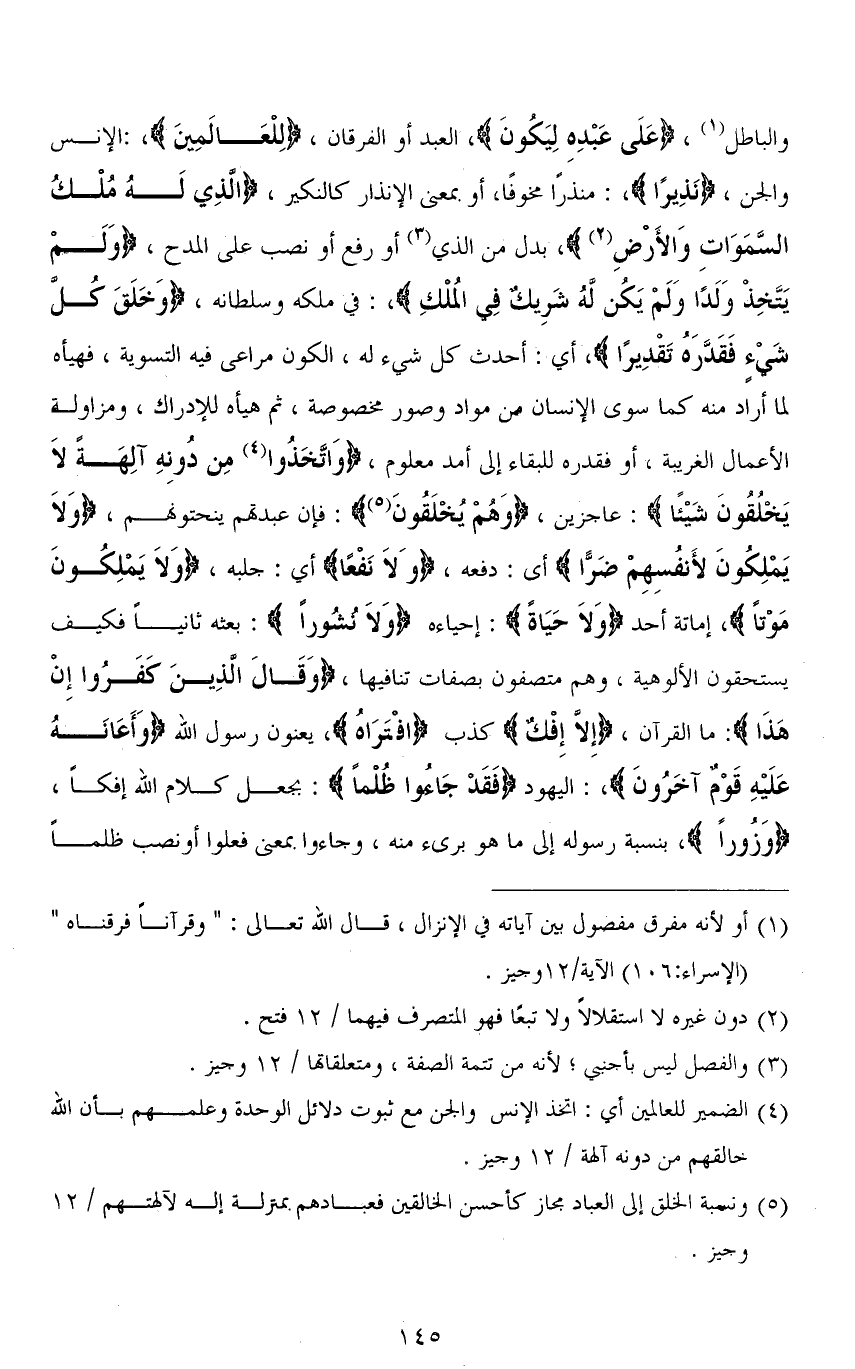 والباطل(١) ، ﴿عَلَى عَبْدِهِ لِيَكُونَ ﴾، العبد أو الفرقان ، ﴿لِلْعَالَمِينَ ﴾، :الإنس
والجن ، ﴿نَذِيرًا ﴾، : منذرًا مخوفًا، أو بمعنى الإنذار كالنكير ، ﴿الَّذِي لَهُ مُلْكُ
السَّمَوَاتِ وَالأَرْضِ(٢) ﴾، بدل من الذي(٣) أو رفع أو نصب على المدح ، ﴿وَلَمْ
يَتَّخِذْ وَلَدًا وَلَمْ يَكُن لَّهُ شَرِيكٌ فِي الْمُلْكِ ﴾، : في ملكه وسلطانه ، ﴿وَخَلَقَ كُلَّ
شَيْءٍ فَقَدَّرَهُ تَقْدِيرًا ﴾، أي : أحدث كل شيء له ، الكون مراعى فيه التسوية ، فهيأه
لما أراد منه كما سوى الإنسان من مواد وصور مخصوصة ، ثم هيأه للإدراك ، ومزاولة
الأعمال الغريبة ، أو فقدره للبقاء إلى أمد معلوم ، ﴿وَاتَّخَذُوا(٤) مِن دُونِهِ آلِهَةً لاَ
يَخْلُقُونَ شَيْئًا ﴾ : عاجزين ، ﴿وَهُمْ يُخْلَقُونَ(٥)﴾ : فإن عبدتهم ينحتونهم ، ﴿وَلاَ
يَمْلِكُونَ لأَنفُسِهِمْ ضَرًّا ﴾ أى : دفعه ، ﴿وَلاَ نَفْعًا﴾ أي : جلبه ، ﴿وَلاَ يَمْلِكُونَ
مَوْتاً ﴾، إماتة أحد ﴿وَلاَ حَيَاةً ﴾ : إحياءه ﴿وَلاَ نُشُوراً ﴾ : بعثه ثانيـاً فكيف
يستحقون الألوهية ، وهم متصفون بصفات تنافيها ، ﴿وَقَالَ الَّذِينَ كَفَرُوا إِنْ
هَذَا ﴾: ما القرآن ، ﴿إِلاَّ إِفْكٌ ﴾ كذب ﴿افْتَرَاهُ ﴾، يعنون رسول الله ﴿وَأَعَانَهُ
عَلَيْهِ قَوْمٌ آخَرُونَ ﴾، : اليهود ﴿فَقَدْ جَاءُوا ظُلْماً ﴾ : بجعل كلام الله إفكاً ،
﴿وَزُوراً ﴾، بنسبة رسوله إلى ما هو برىء منه ، وجاءوا بمعنى فعلوا أونصب ظلماً
(١) أو لأنه مفرق مفصول بين آياته في الإنزال ، قال الله تعالى : " وقرآناً فرقناه "
(الإسراء:١٠٦) الآية/١٢وجيز .
(٢) دون غيره لا استقلالاً ولا تبعًا فهو المتصرف فيهما / ١٢ فتح .
(٣) والفصل ليس بأجنبي ؛ لأنه من تتمة الصفة ، ومتعلقاتها / ١٢ وجيز .
(٤) الضمير للعالمين أي : اتخذ الإنس والجن مع ثبوت دلائل الوحدة وعلمهم بأن الله
خالقهم من دونه آلهة / ١٢ وجيز .
(٥) ونسبة الخلق إلى العباد مجاز كأحسن الخالقين فعبادهم بمنزلة إله لآلهتهم / ١٢
وجيز .
١٤٥